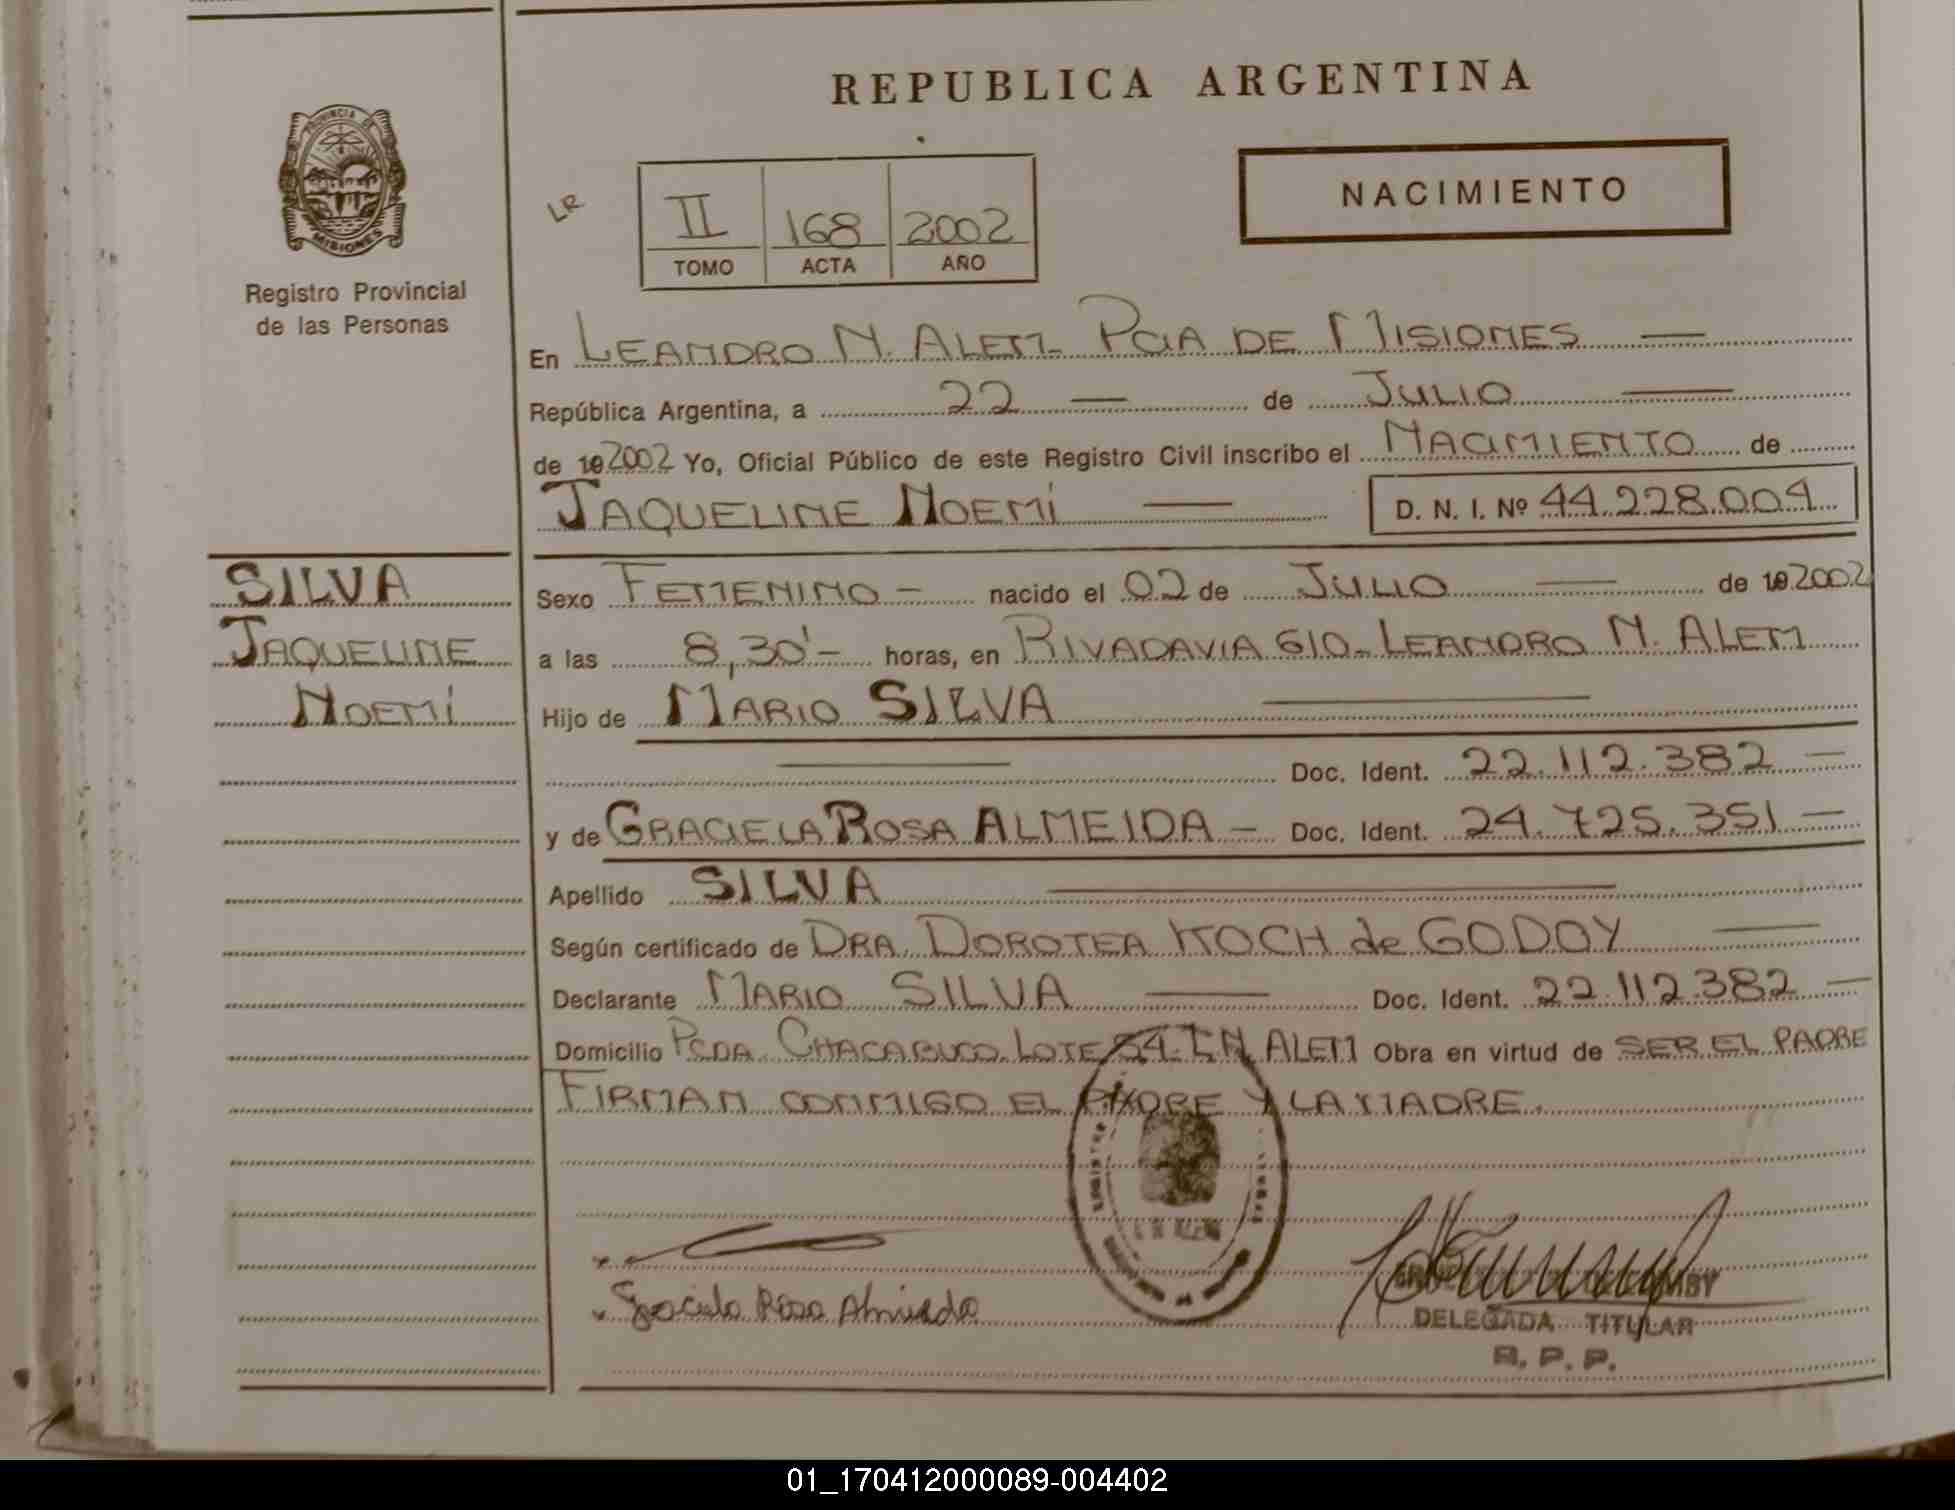 REPUBLICA ARGENTINA
PROVINCIA DE
MISIONES
Registro Provincial
de las Personas
LR
II 168 2002
TOMO ACTA AÑO
NACIMIENTO
En LEANDRO N. ALEM - PCIA DE MISIONES —
República Argentina, a 22 — de JULIO —
de 192002 Yo, Oficial Público de este Registro Civil inscribo el NACIMIENTO de
JAQUELINE NOEMÍ — D. N. I. Nº 44.228.004
SILVA
JAQUELINE
NOEMÍ
Sexo FEMENINO - nacido el 02 de JULIO — de 192002
a las 8,30'- horas, en RIVADAVIA 610- LEANDRO N. ALEM
Hijo de MARIO SILVA —
— Doc. Ident. 22.112.382 —
y de GRACIELA ROSA ALMEIDA - Doc. Ident. 24.725.351 —
Apellido SILVA —
Según certificado de DRA. DOROTEA KOCH de GODOY —
Declarante MARIO SILVA — Doc. Ident. 22.112.382 —
Domicilio PCDA. CHACABUCO LOTE 54. L N. ALEM Obra en virtud de SER EL PADRE
FIRMAN CONMIGO EL PADRE Y LA MADRE.
Graciela Rosa Almeida
DELEGADA TITULAR
R. P. P.
01_170412000089-004402